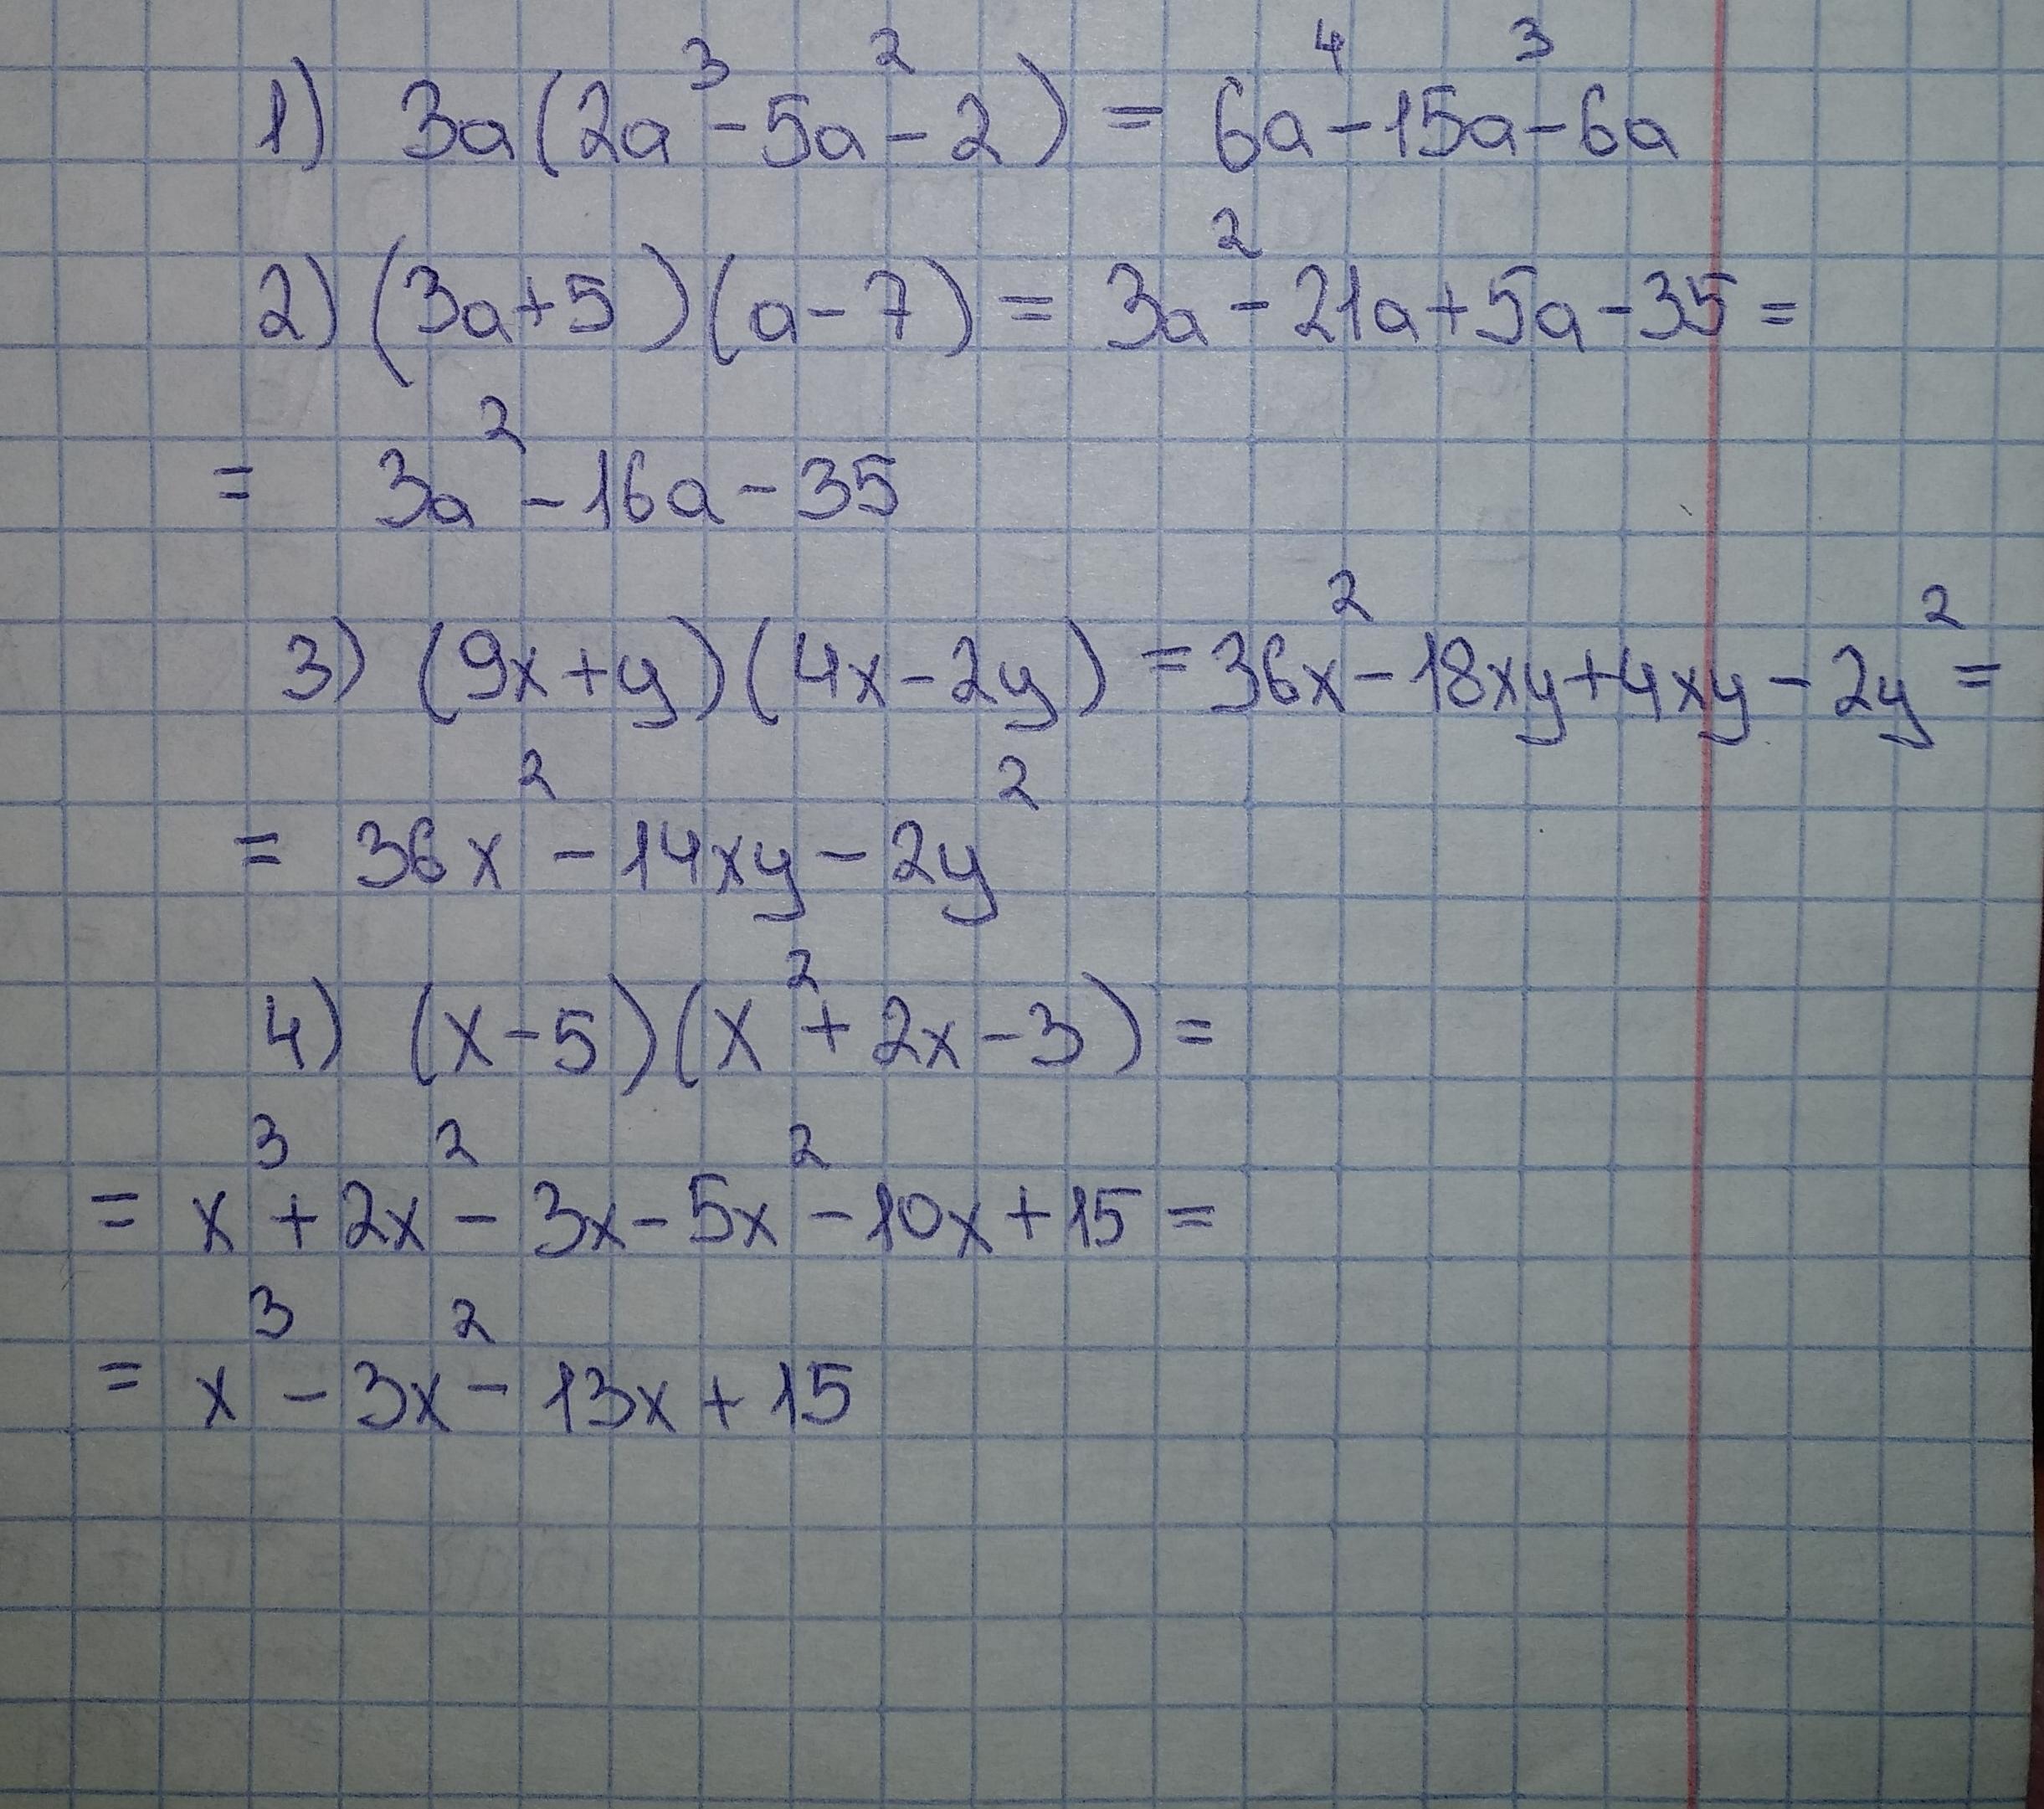 1) 3a(2a³-5a²-2) = 6a⁴-15a³-6a
2) (3a+5)(a-7) = 3a²-21a+5a-35=
= 3a²-16a-35
3) (9x+y)(4x-2y) = 36x²-18xy+4xy-2y²=
= 36x²-14xy-2y²
4) (x-5)(x²+2x-3)=
= x³+2x²-3x-5x²-10x+15=
= x³-3x²-13x+15